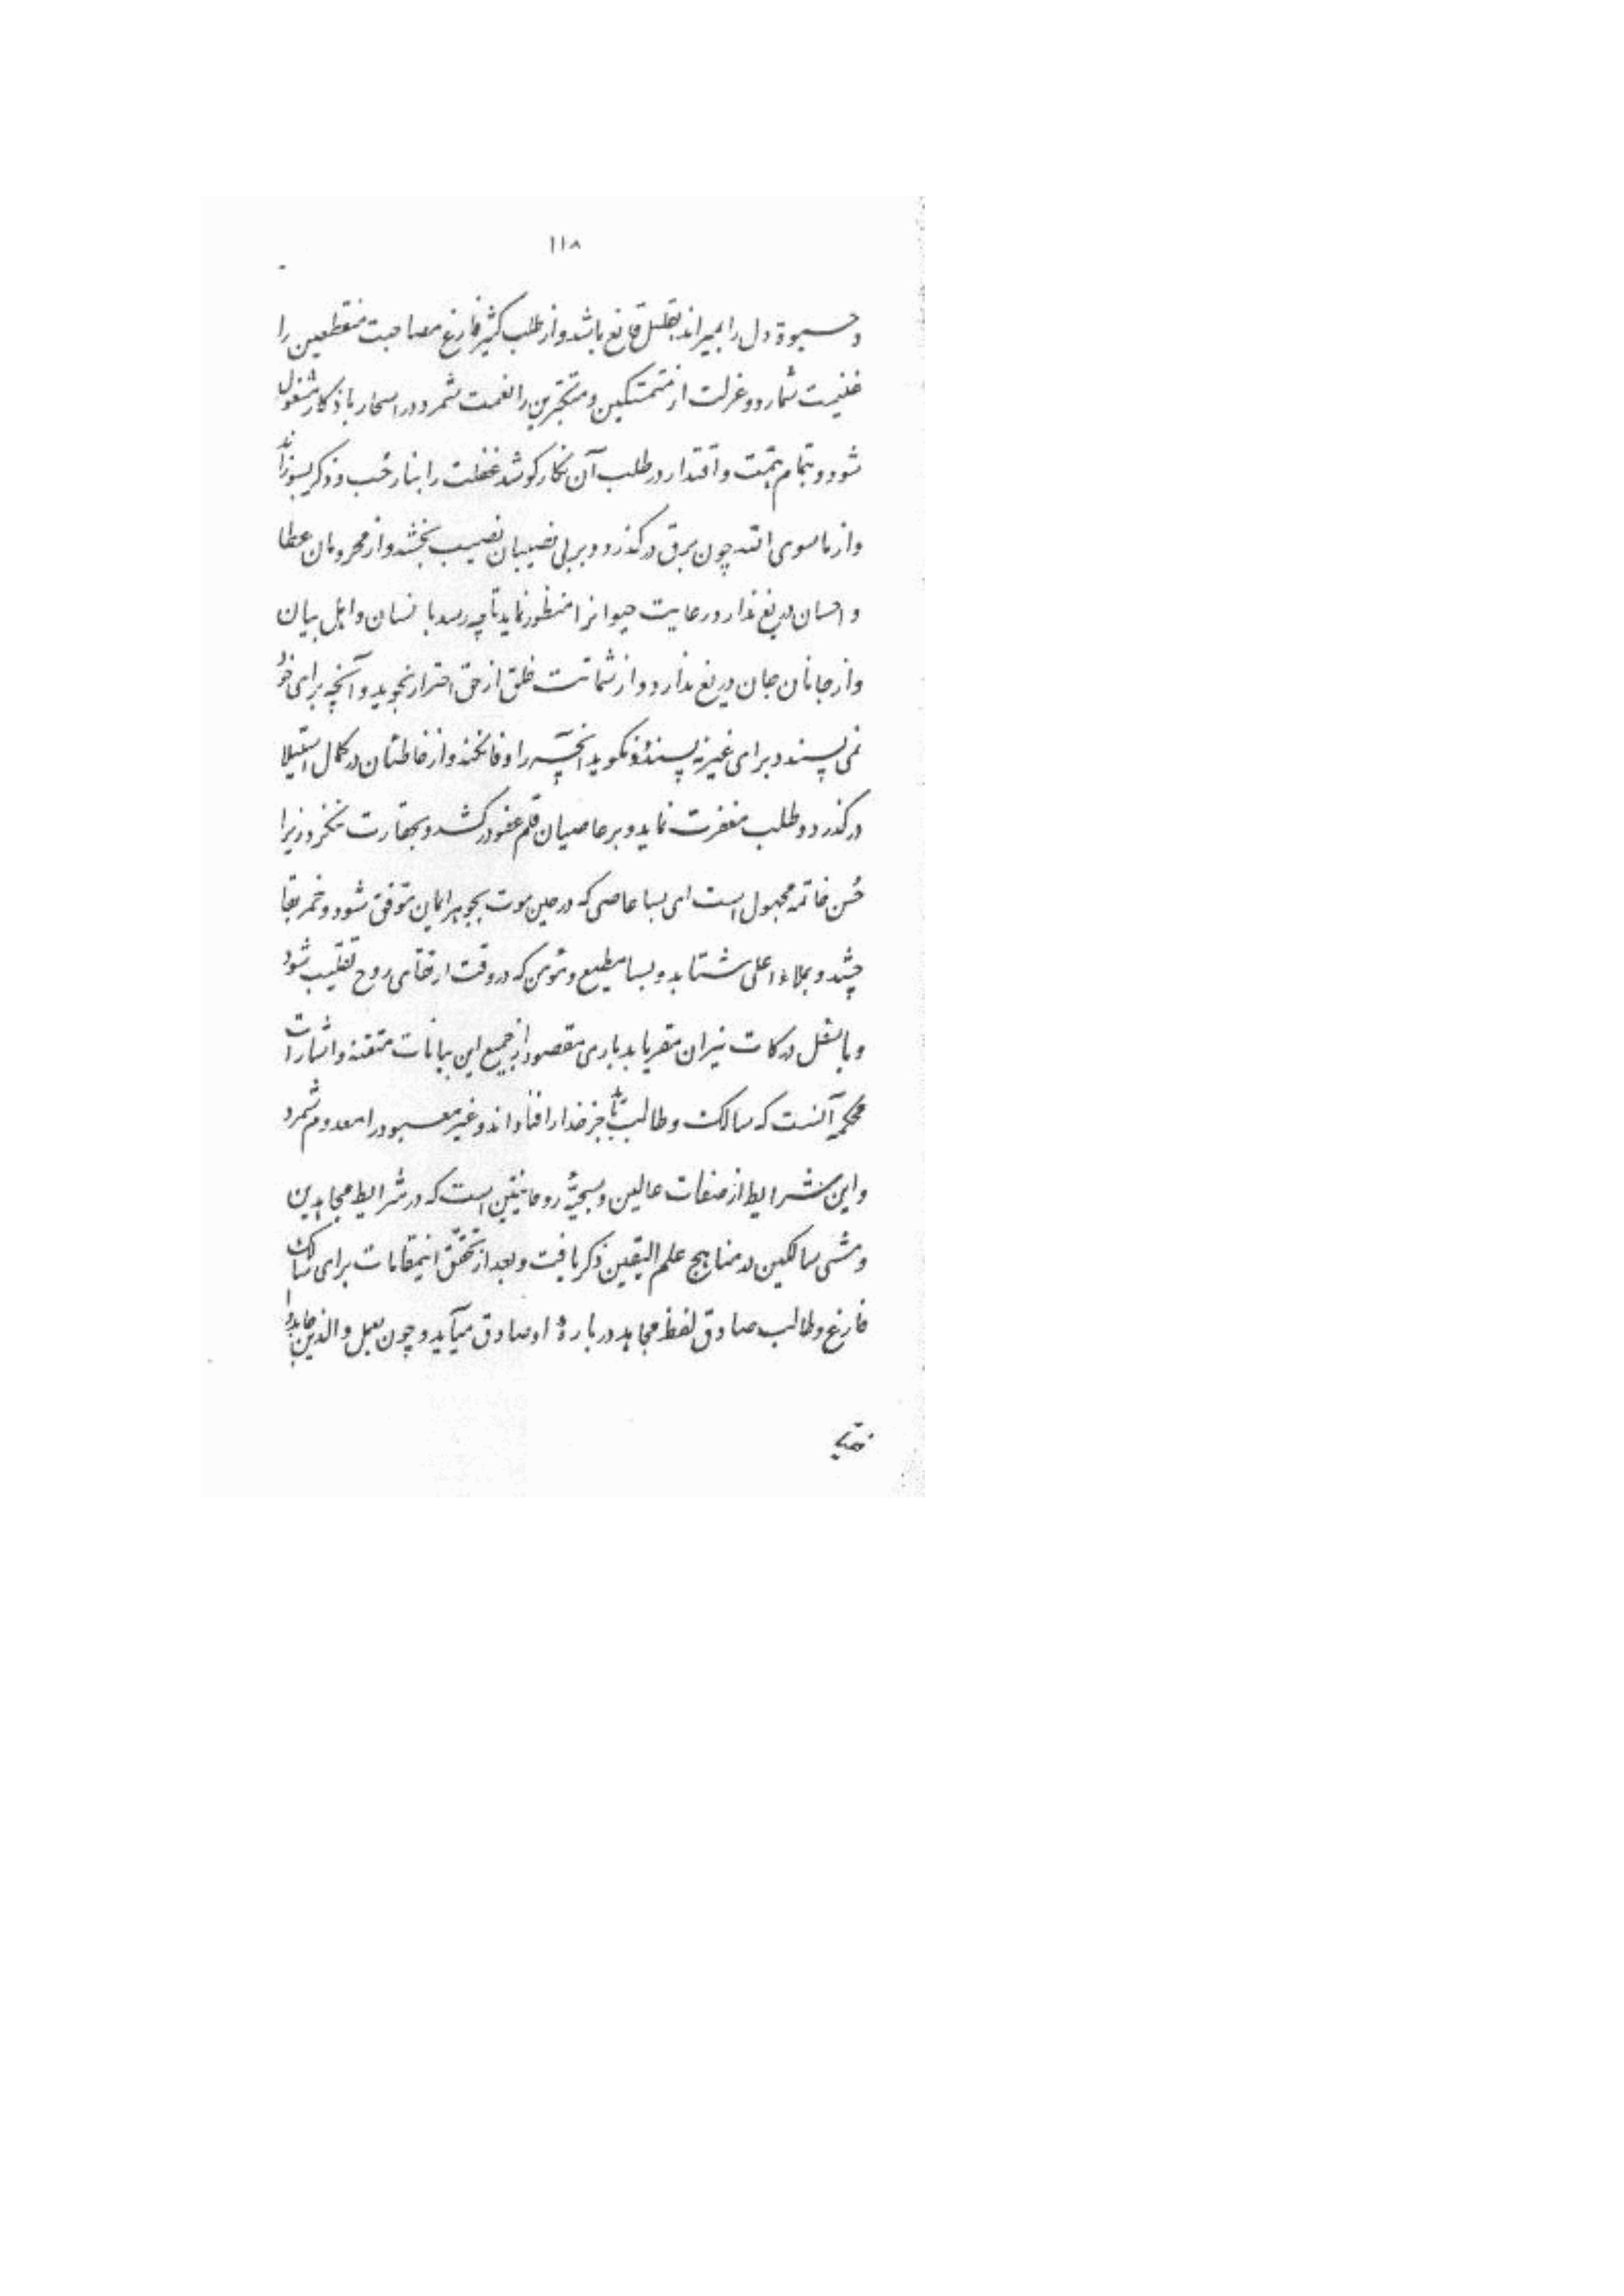 ١١٨
و حیوة دل را بمیراند بقلیل قانع باشد و از طلب کثیر فارغ مصاحبت منقطعین را
غنیمت شمارد و عزلت از متمسّکین و متکبّرین را نعمت شمرد در اسحار باذکار مشغول
شود و بتمام همّت و اقتدار در طلب آن نگار کوشد غفلت را بنار حُب و ذکر بسوزاند
و از ماسوی اللّه چون برق درگذرد و بر بی نصیبان نصیب بخشد و از محرومان عطا
و احسان دریغ ندارد رعایت حیوانرا منظور نماید تا چه رسد بانسان و اهل بیان
و از جانان جان دریغ ندارد و از شماتت خلق از حق احتراز نجوید و آنچه برای خود
نمی پسندد برای غیر نه پسندد و نگوید آنچه را وفا نکند و از خاطئان در کمال استیلا
درگذرد و طلب مغفرت نماید و بر عاصیان قلم عفو درکشد و بحقارت ننگرد زیرا
حُسن خاتمه مجهول است ای بسا عاصی که در حین موت بجوهر ایمان موفّق شود و خمر بقا
چشد و بملاء اعلی شتابد و بسا مطیع و مؤمن که در وقت ارتقای روح تقلیب شود
و باسفل درکات نیران مقر یابد باری مقصود از جمیع این بیانات متقنه و اشارات
محکمه آنست که سالک و طالب باید جز خدا را فنا داند و غیر معبود را معدوم شمرد
و این شرایط از صفات عالین و سجیّهٔ روحانیّین است که در شرایط مجاهدین
و مشی سالکین در مناهج علم الیقین ذکر یافت و بعد از تحقّق اینمقامات برای سالک
فارغ و طالب صادق لفظ مجاهد دربارهٔ او صادق میآید و چون بعمل والذین جاهدوا